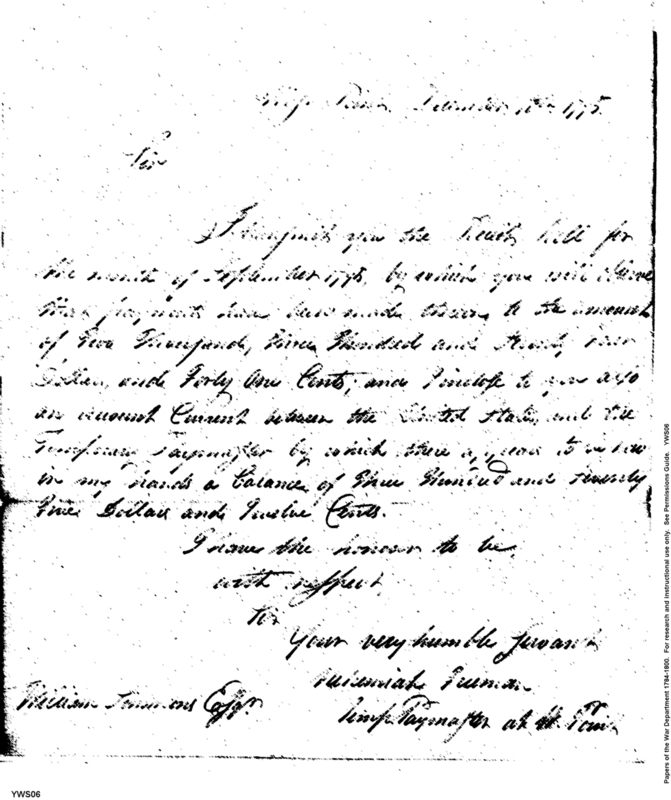 West Point December 10th 1795
Sir
I transmit you the Receipt Roll for
the month of September 1795, by which you will observe
that payments have been made thereon to the amount
of Two Thousand, Nine Hundred and Twenty
Dollars, and Forty One Cents; and I inclose to you also
an account Current between the United States, and the
Temporary Paymaster by which there appears to be now
in my hands a balance of Three Hundred and seventy
five Dollars and Twelve Cents.
I have the honour to be
with respect
Sir
Your very humble servant
Nehemiah Freeman
William Simmons Esqr.
Temp Paymaster at W. Point
Papers of the War Department 1784-1800. For research and instructional use only. See Permissions Guide. YWS06
YWS06